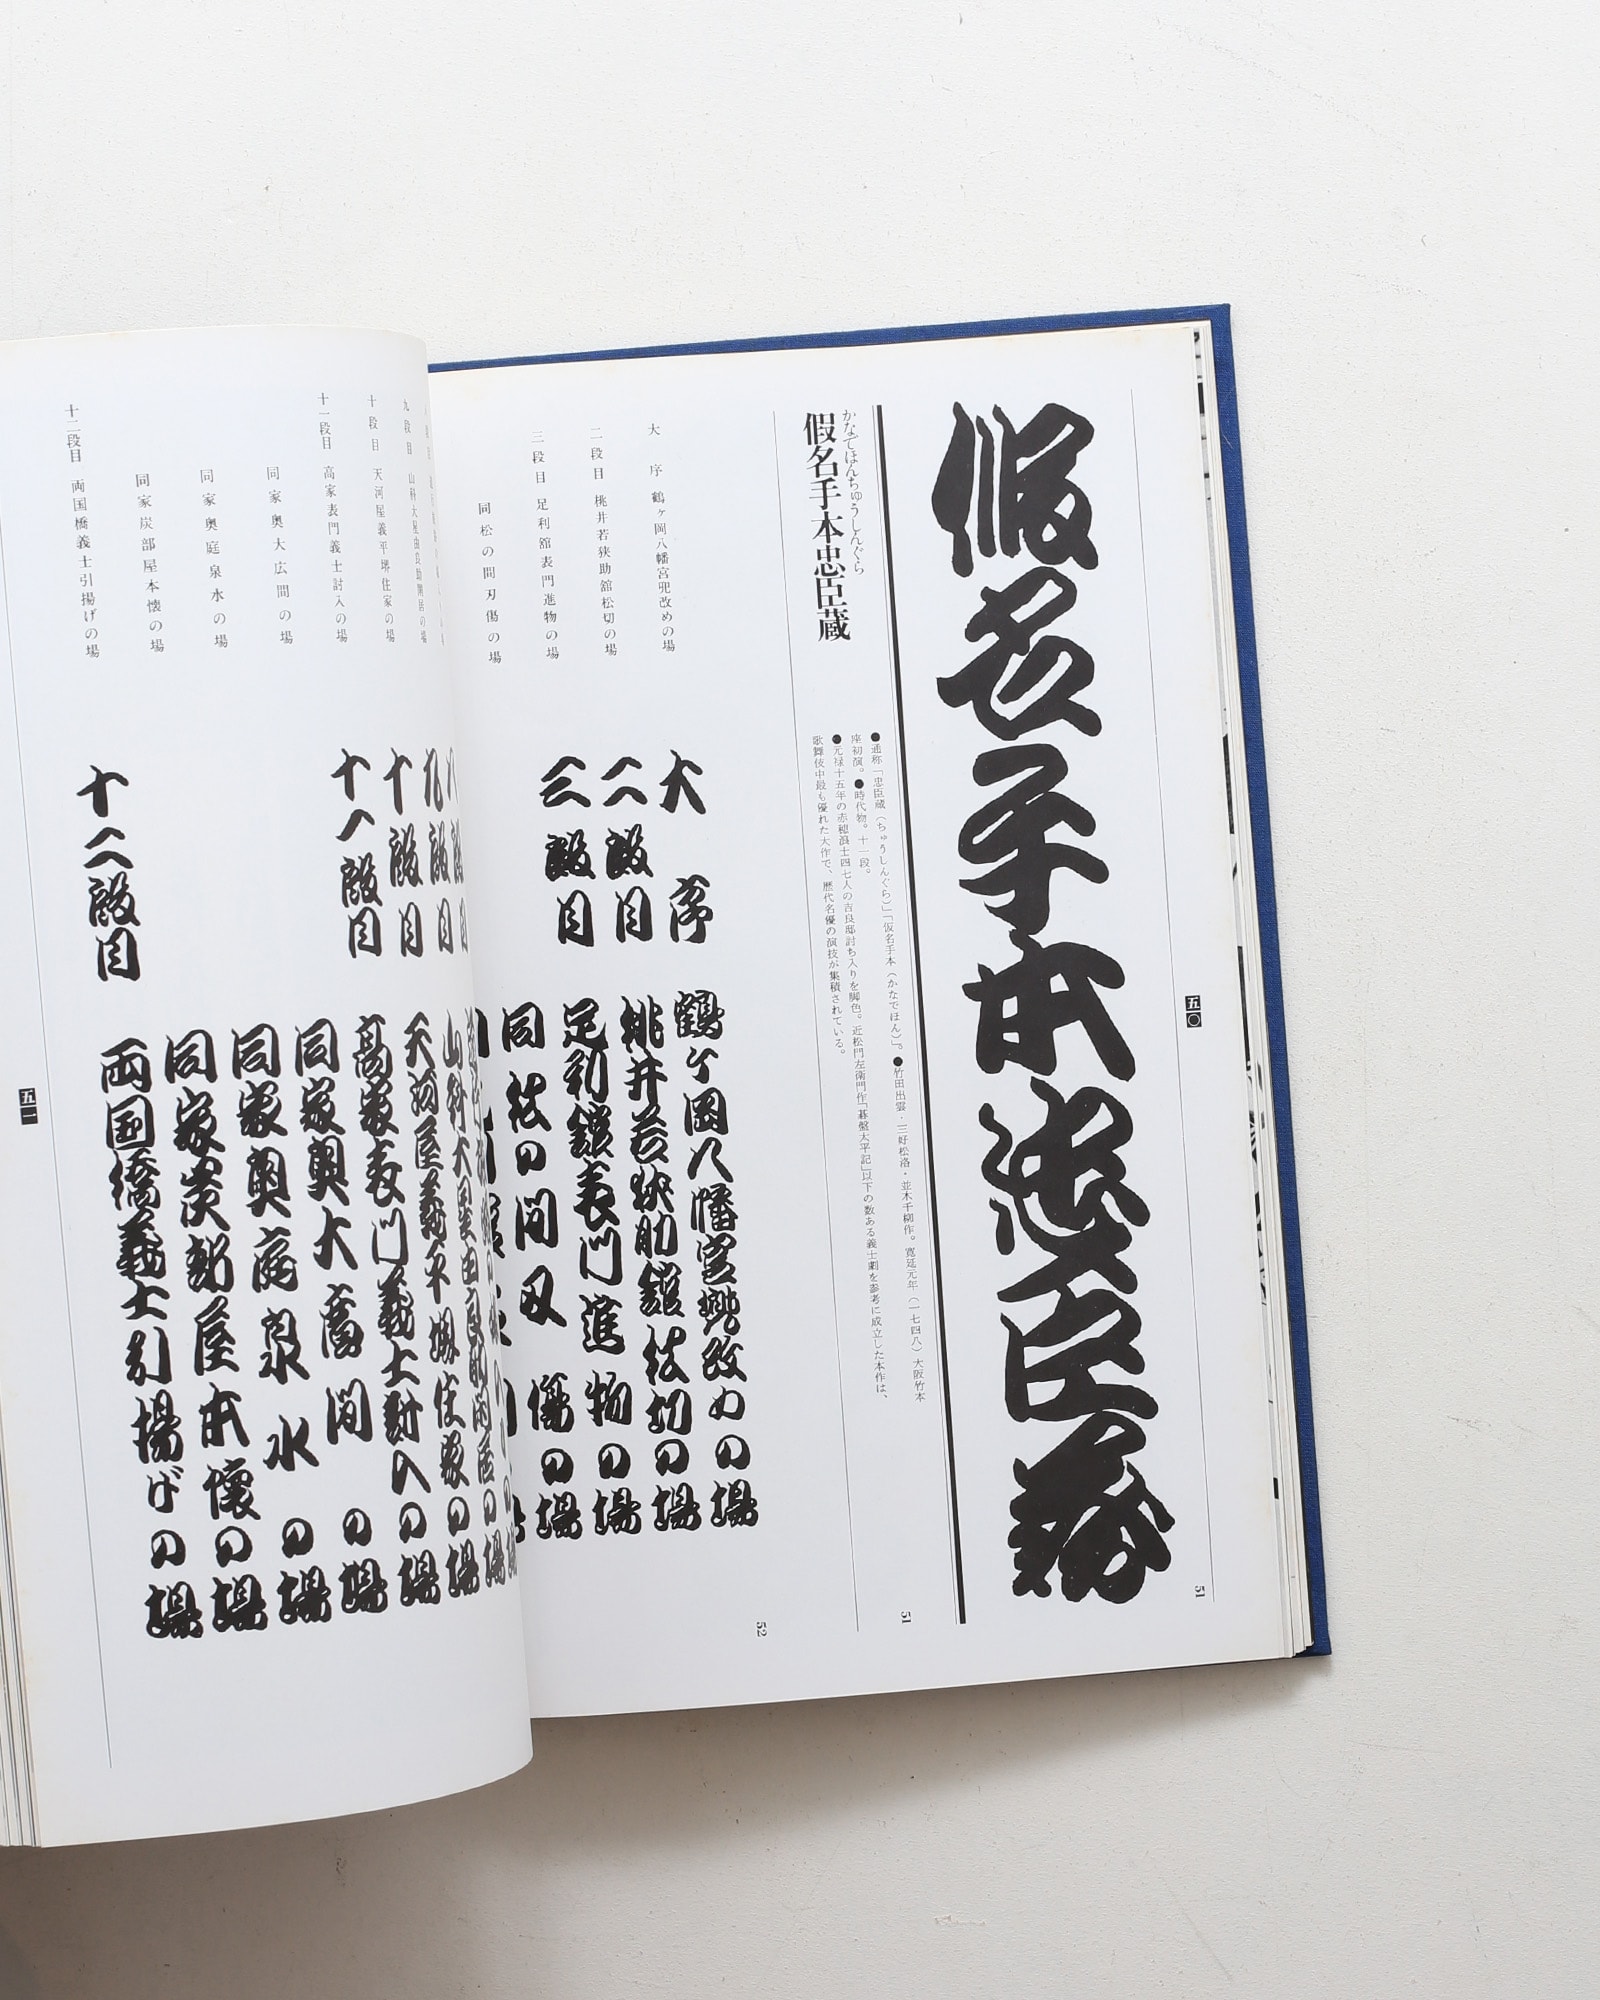 五〇
假名手本忠臣蔵
51
●通称「忠臣蔵(ちゅうしんぐら)」「仮名手本(かなでほん)」。●竹田出雲・三好松洛・並木千柳作。寛延元年(一七四八)大阪竹本
座初演。●時代物。十一段。
●元禄十五年の赤穂浪士四七人の吉良邸討ち入りを脚色。近松門左衛門作「碁盤太平記」以下の数ある義士劇を参考に成立した本作は、
歌舞伎中最も優れた大作で、歴代名優の演技が集積されている。
51
かなでほんちゅうしんぐら
假名手本忠臣蔵
大序 鶴ヶ岡八幡宮兜改めの場
二段目 桃井若狭助舘松切の場
三段目 足利舘表門進物の場
同松の間刃傷の場
大序 鶴ヶ岡八幡宮兜改めの場
二段目 桃井若狭助舘松切の場
三段目 足利舘表門進物の場
同松の間刃傷の場
52
九段目 山科大星由良助閑居の場
十段目 天河屋義平堺住家の場
十一段目 高家表門義士討入の場
同家奥大広間の場
同家奥庭泉水の場
同家炭部屋本懐の場
十二段目 両国橋義士引揚げの場
九段目 山科大星由良助閑居の場
十段目 天河屋義平堺住家の場
十一段目 高家表門義士討入の場
同家奥大広間の場
同家奥庭泉水の場
同家炭部屋本懐の場
十二段目 両国橋義士引揚げの場
五一